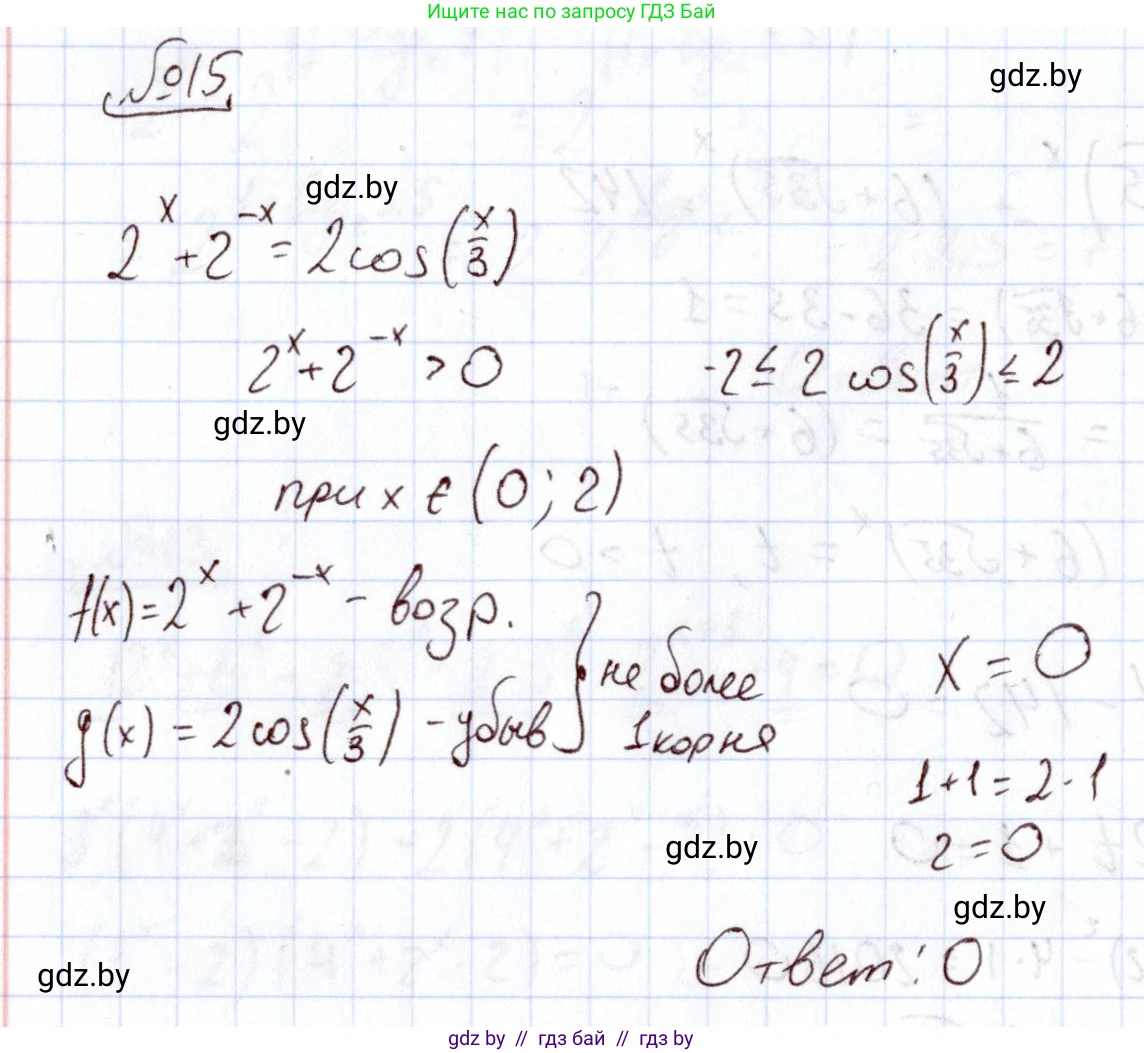 Ищите нас по запросу ГДЗ Бай
№15
gdz.by
gdz.by
2^x + 2^-x = 2cos(x/3)
2^x + 2^-x > 0
-2 ≤ 2 cos(x/3) ≤ 2
gdz.by
при x ∈ (0; 2)
f(x) = 2^x + 2^-x - возр.
g(x) = 2cos(x/3) - убыв
} не более
1 корня
x = 0
1+1 = 2·1
2 = 0
gdz.by
gdz.by
Ответ: 0
gdz.by
gdz by // гдз бай // гдз by